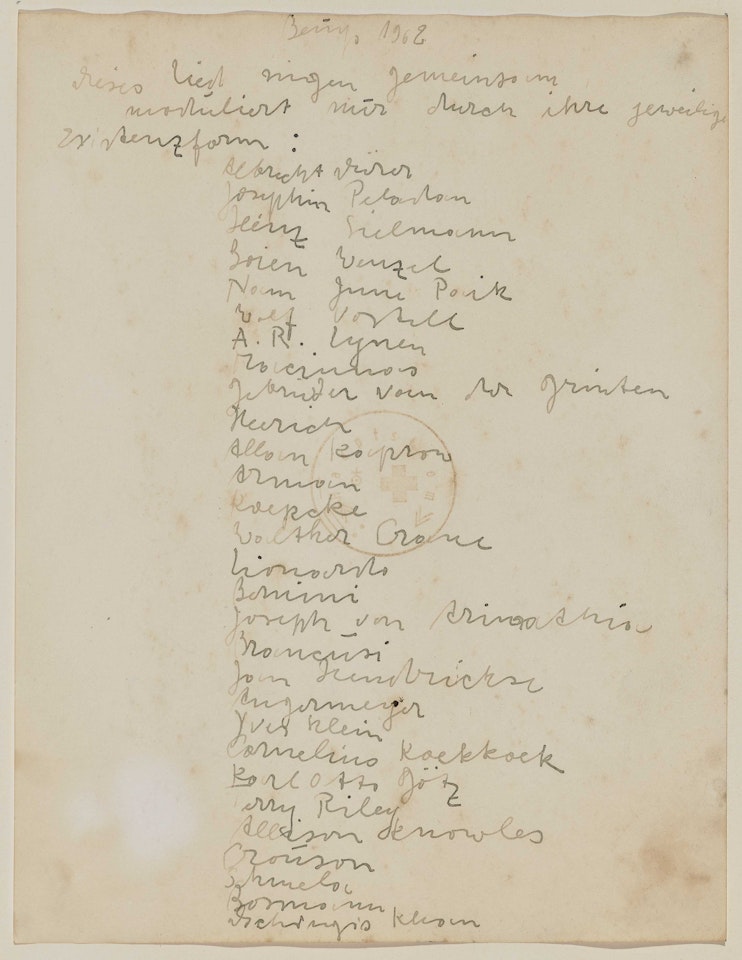 Beuys 1962
dieses Lied singen gemeinsam
moduliert nur durch ihre jeweilige
Existenzform :
Albrecht Dürer
Josephin Peladan
Heinz Sielmann
Wenzel
Nam June Paik
Wolf Vostell
A. R. Lynen
Maciunas
Gebrüder van der Grinten
Heerich
Allan Kaprow
Arman
Koepcke
Walther Crane
Lionardo
Joseph von Arimathia
Brancusi
Jan Hendrickse
Angermeyer
Yves Klein
Cornelius Koekkoek
Karl Otto Götz
Terry Riley
Allison Knowles
Schmela
Dschingis Khan